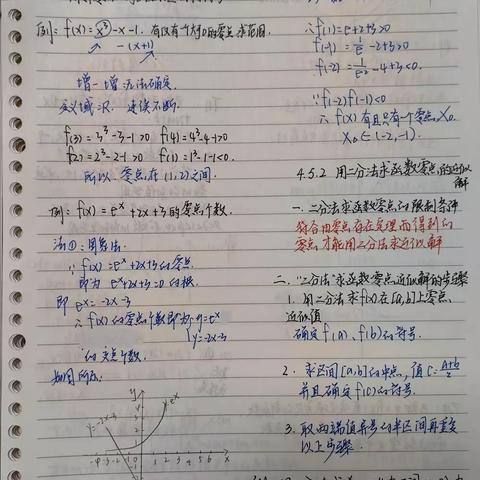 例: f(x)=x³-x-1. 有仅有一个大于0的零点 求范围.
-(x+1)
增-增 无法确定.
定义域为R. 连续不断.
f(3)=3³-3-1>0 f(4)=4³-4-1>0
f(2)=2³-2-1>0 f(1)=1³-1-1<0.
所以. 零点在(1,2)之间.
例: f(x)=eˣ+2x+3的零点个数.
法①: 用算法:
∵f(x)=eˣ+2x+3的零点
即为 eˣ+2x+3=0的根
即 eˣ=-2x-3
∴f(x)的零点个数即为{y=eˣ
y=-2x-3
的交点个数.
如图所示:
y=-2x-3
y
y=eˣ
-4 -3 -2 -1
1 2 3 4 5 6 x
∴f(1)=e+2+3>0
f(-1)=1/e-2+3>0
f(-2)=1/e²-4+3<0.
∵f(-2)f(-1)<0
∴f(x)有且只有一个零点x₀.
x₀∈(-2,-1).
4.5.2 用二分法求函数零点的近似
解
一. 二分法求函数零点的限制条件
符合由零点存在定理而得到的
零点才能用二分法求近似解
二. "二分法"求函数零点近似解的步骤
1. 用二分法求f(x)在[a,b]上零点
近似值
确定f(a), f(b)的符号.
2. 求区间[a,b]的中点, 值C=(a+b)/2
并且确定f(c)的符号.
3. 取两端值异号的半区间再重复
以上步骤.